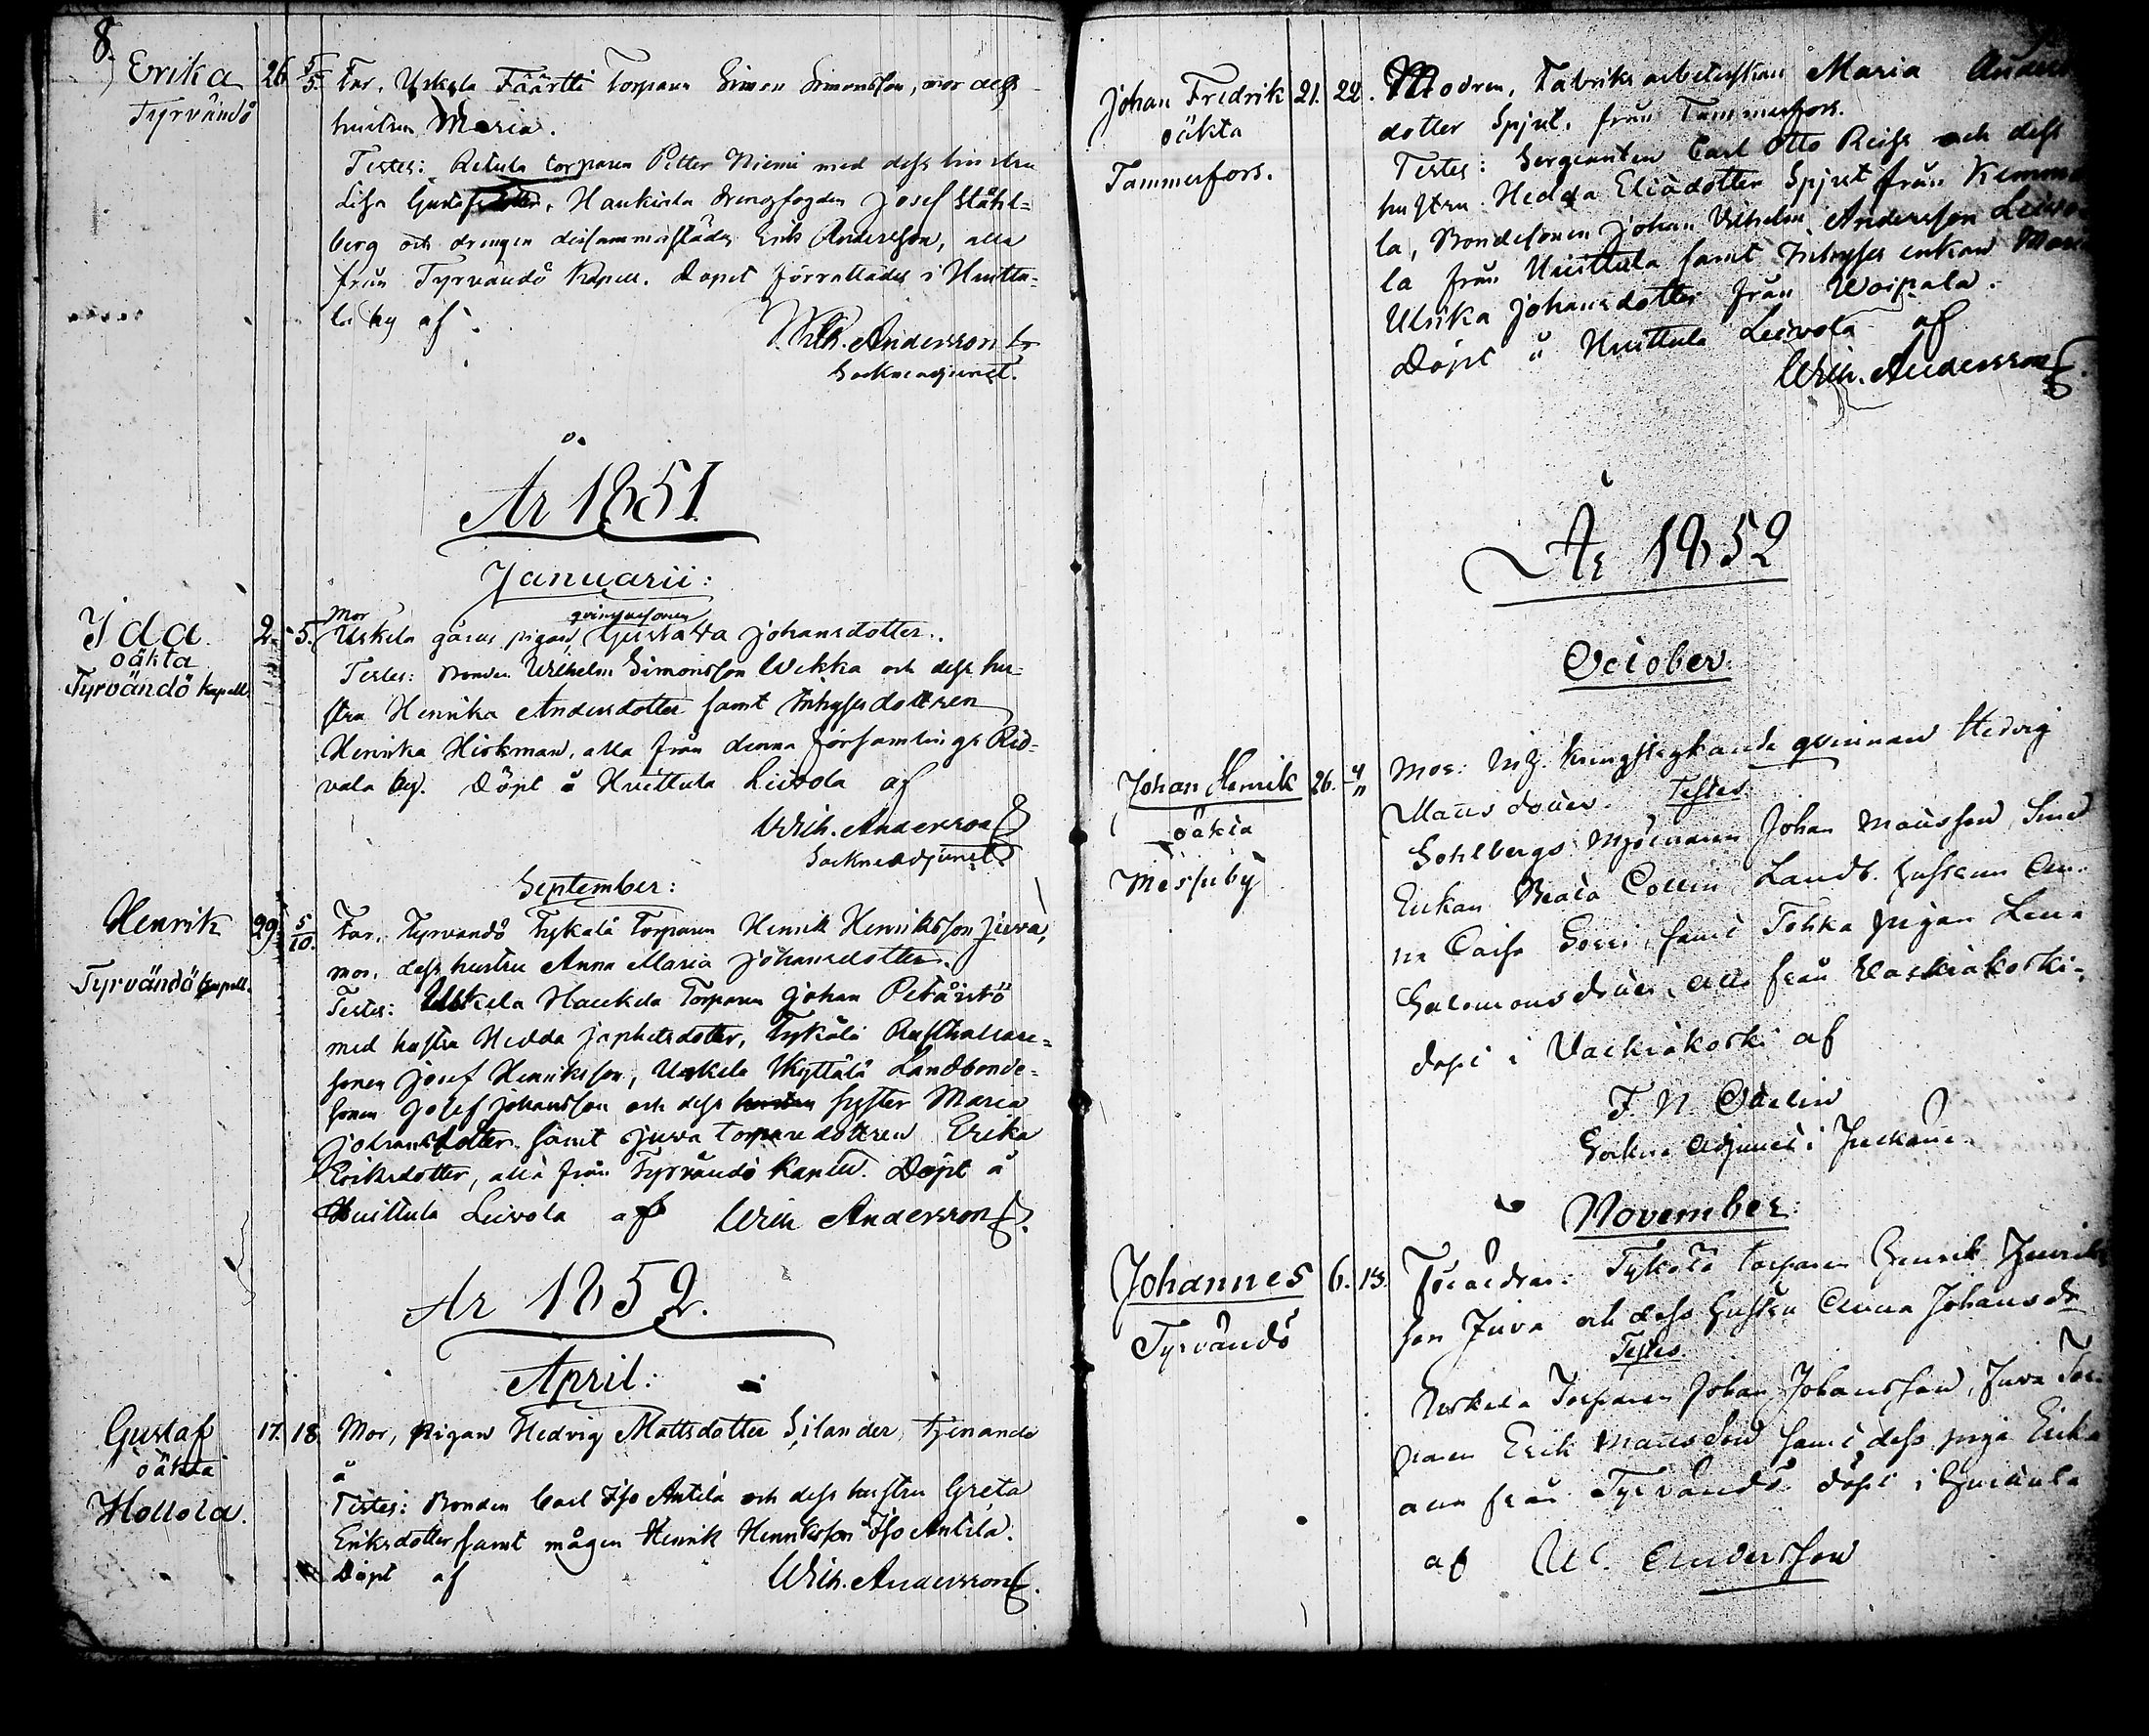 8.
Erika 26. 5/5. Far, Uskela Fäärtti Torparen Simon Simonsson, mor dess
Tyrvändö hustru Maria.
Testes: Retula torparen Petter Niemi med dess hustru
Lisa, Haukila drengfogden Josef Ståhl=
berg och drengen dersammastädes Erik Andersson, alla
från Tyrvändö Kapell. Dopet förrättades i Huittu=
la by af
Wilh. Andersson
Sockneadjunct.
År 1851
Januarii:
Mor qvinspersonen
Ida 2. 5. Uskela gårds pigan, Gustava Johansdotter.
oäkta Testes: Bonden Wilhelm Simonsson Uckka och dess hu=
Tyrvändö kapell. stru Henrika Andersdotter samt Inhyses dottren
Henrika Hickman, alla från denna församlings Rid=
vala by. Döpt å Huittula Leivola af
Wilh. Andersson
Sockneadjunct
September:
Henrik 29. 5/10. Far, Tyrvändö Tykölä Torparen Henrik Henriksson Juva,
mor, dess hustru Anna Maria Johansdotter.
Tyrvändö kapell. Testes: Uskela Haukela Torparen Johan Petäistö
med hustru Hedda Japhetsdotter, Tykölä Rusthållare=
sonen Josef Henriksson, Uskela Kyttälä Landbonde=
sonen Josef Johansson och dess hustru syster Maria
Johansdotter samt Juva torpare dottren Erika
Eriksdotter, alla från Tyrvändö Kapell. Döpt å
Huittula Leivola af Wilh Andersson
År 1852.
April:
Gustaf 17. 18. Mor, pigan Hedvig Mattsdotter Silander, tjenande
oäkta å
Hollola. Testes: Bonden Carl Iso Antila och dess hustru Greta
Eriksdotter samt mågen Henrik Henriksson Iso Antila.
Döpt af Wilh. Andersson
Johan Fredrik 21. 22. Modren, Fabriks arbeterskan Maria Anders
oäkta dotter Spjut, från Tammerfors.
Tammerfors. Testes: Sergeanten Carl Otto Reiss och dess
hustru Hedda Eliædotter Spjut från Kemmo
la, Bondesonen Johan Vilhelm Andersson Leivo
la från Huittula samt Inhyses enkan Maria
Ulrika Johansdotter från Woipala.
Döpt å Huittula Leivola af
Wilh. Andersson
År 1852
October
Johan Henrik 26. 4/11 Mor: kringstrykande qvinnan Hedvig
oäkta Mattsdotter. Testes.
Messuby Sohlbergs Mjölnaren Johan Mattsson, Smed
Enkan Beata Collin, Landb. hustrun An=
na Caisa Sorri, samt Tohka pigan Lena
Salomonsdotter, alla från Valkiakoski.
döpt i Valkiakoski af
F. N. Odelin
Sockne Adjunct i Jackana
November
Johannes 6. 13. Föräldrar: Tykölä torparen Henrik Henriks
Tyrvändö son Juva och dess hustru Anna Johansdr
Testes.
Uskela Torparen Johan Johansson, Juva Tor=
paren Erik Mattsson samt dess piga Erika
alla från Tyrvändö. döpt i Huittula
af W. Andersson